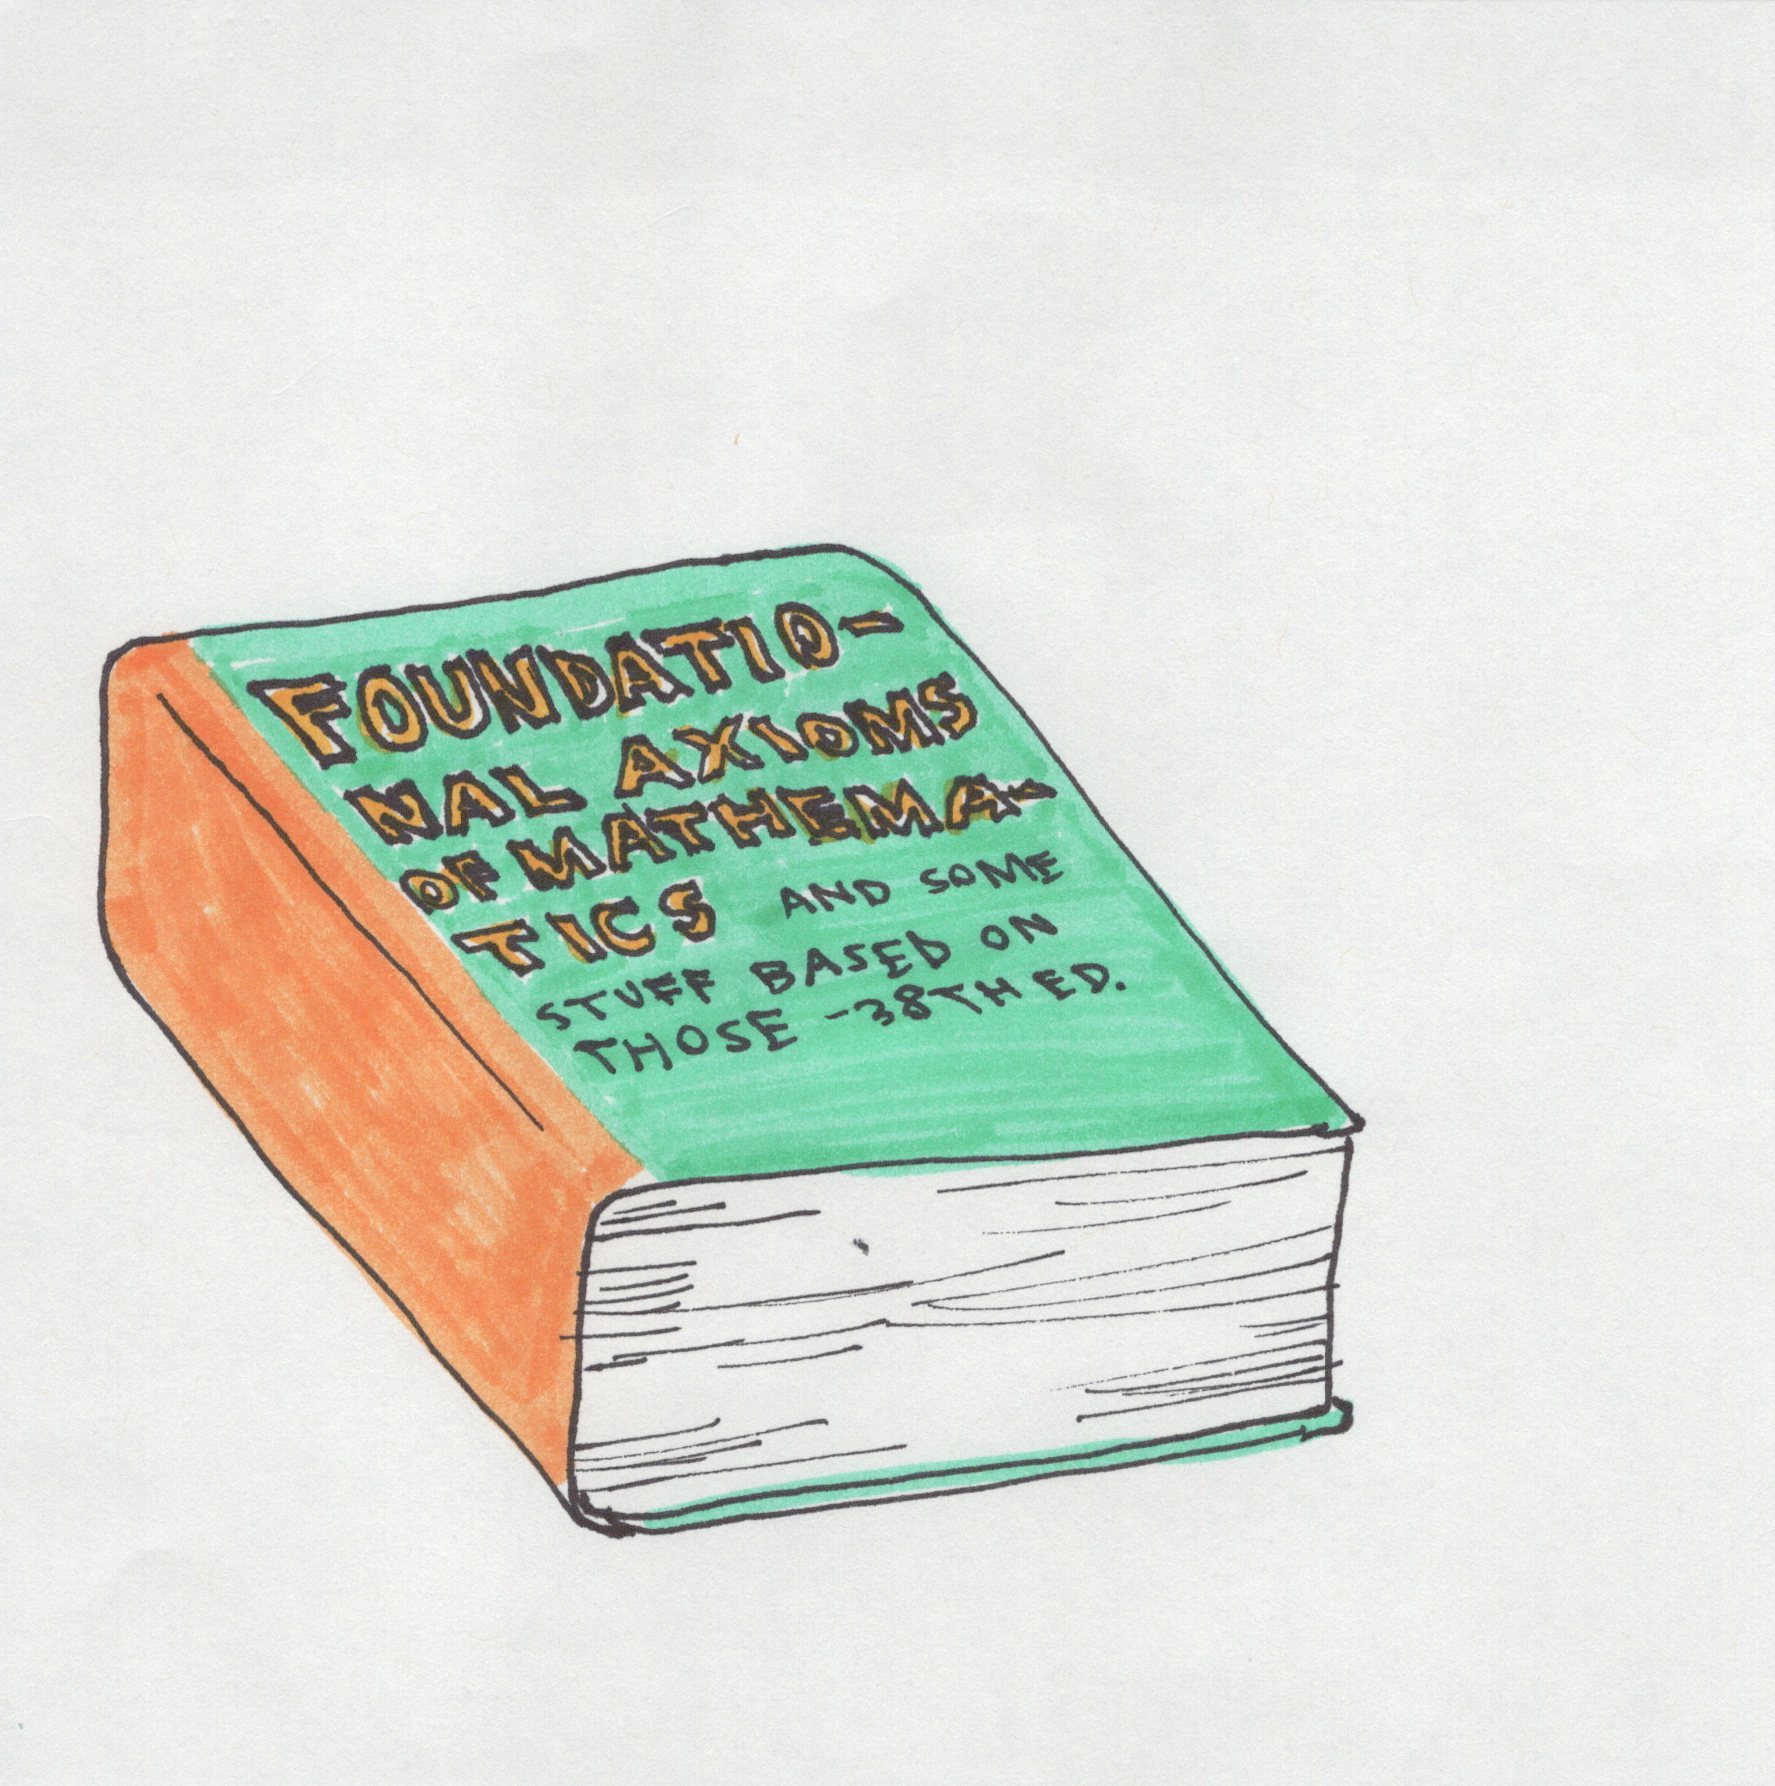 FOUNDATIO-
NAL AXIOMS
OF MATHEMA-
TICS AND SOME
STUFF BASED ON
THOSE -38TH ED.